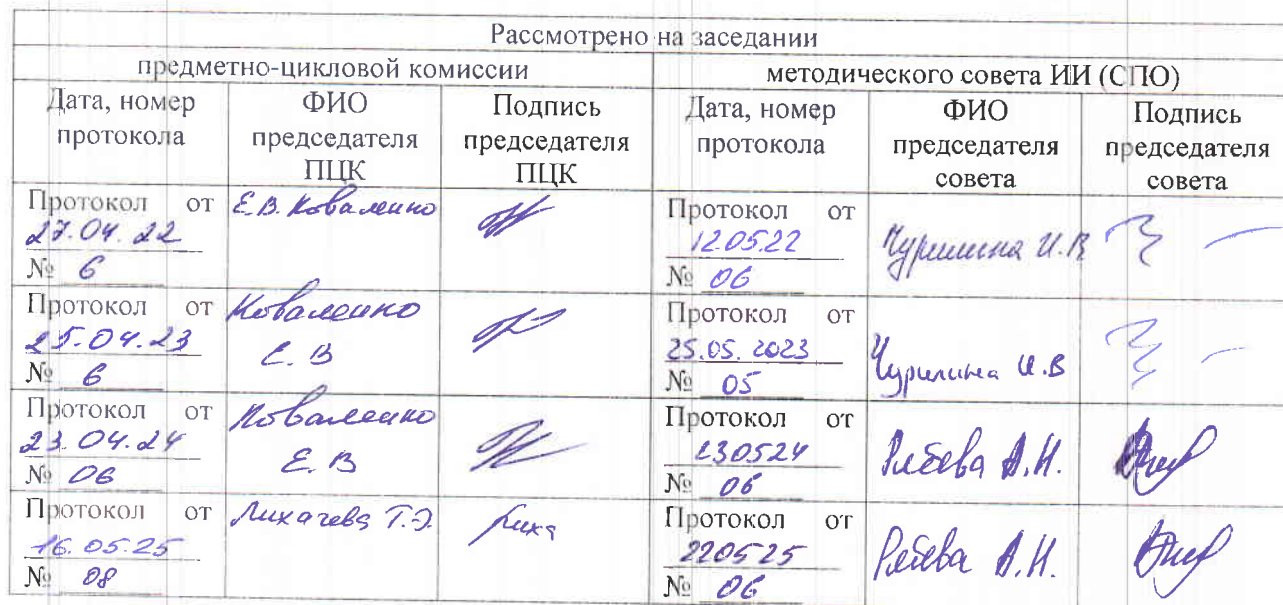 Рассмотрено на заседании
предметно-цикловой комиссии
методического совета ИИ (СПО)
Дата, номер протокола
ФИО председателя ПЦК
Подпись председателя ПЦК
Дата, номер протокола
ФИО председателя совета
Подпись председателя совета
Протокол от
27.04.22
№ 6
Е.В. Коваленко
Протокол от
12.05.22
№ 06
Чурилина И.В
Протокол от
25.04.23
№ 6
Коваленко
Е.В
Протокол от
25.05.2023
№ 05
Чурилина И.В
Протокол от
23.04.24
№ 06
Коваленко
Е.В
Протокол от
230524
№ 06
А.Н.
Протокол от
16.05.25
№ 08
Лихачева Т.Э.
Лиха
Протокол от
220525
№ 06
А.Н.